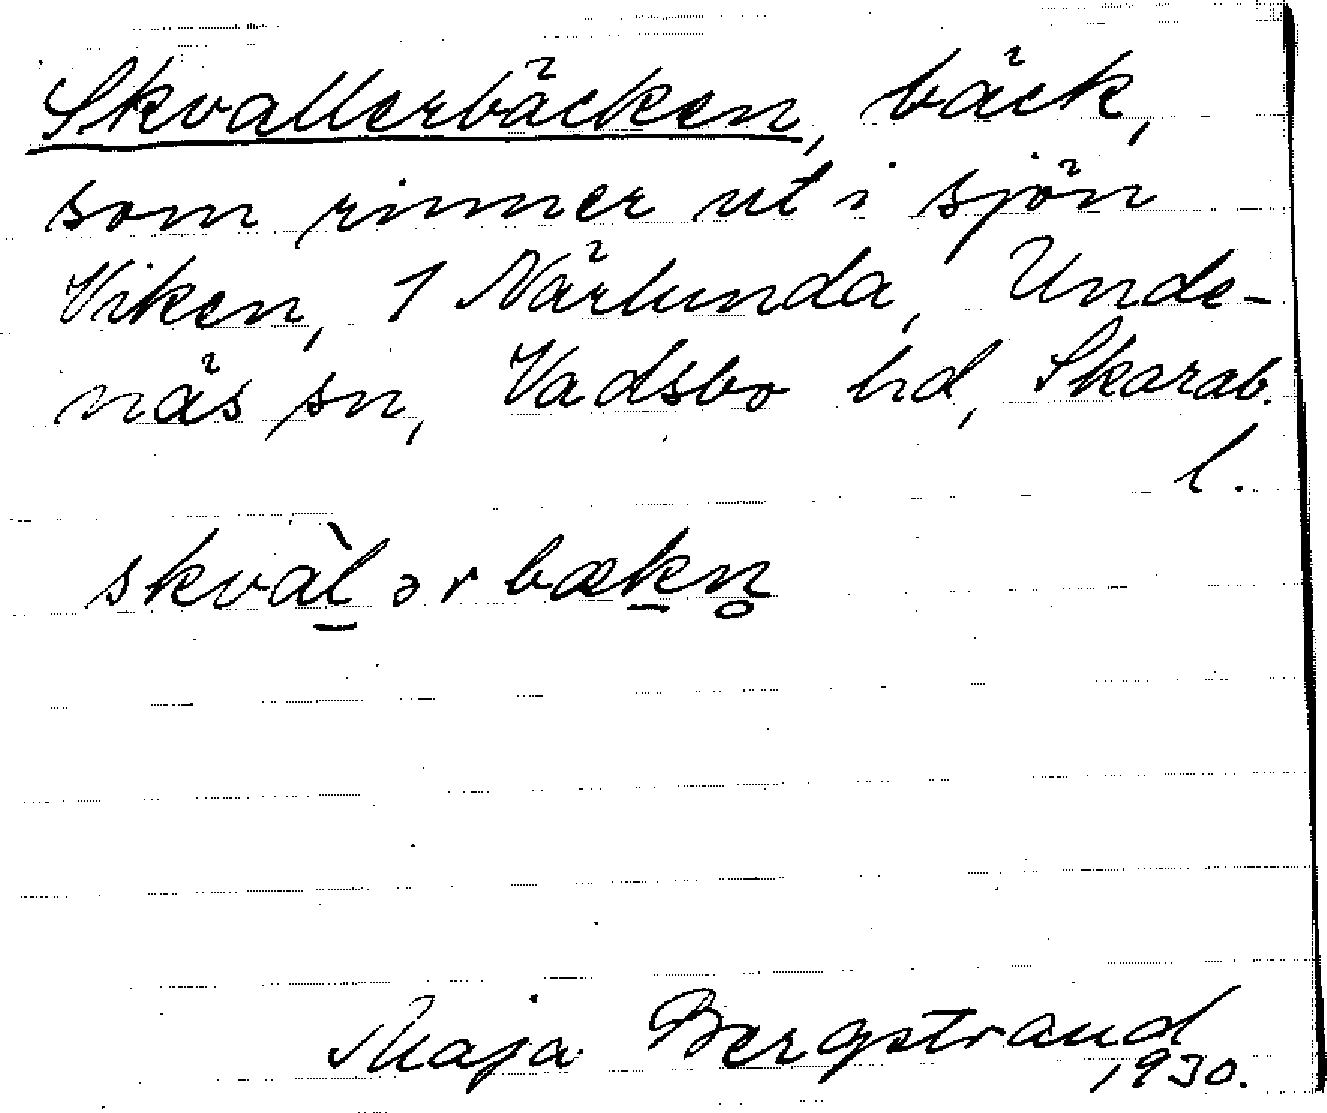 Skvallerbäcken, bäck,
som rinner ut i sjön
Viken, 1 Närlunda, Unde-
näs sn, Vadsbo hd, Skarab.
l.
skvàl̠ ər bæk̠n̥
Maja Bergstrand
1930.